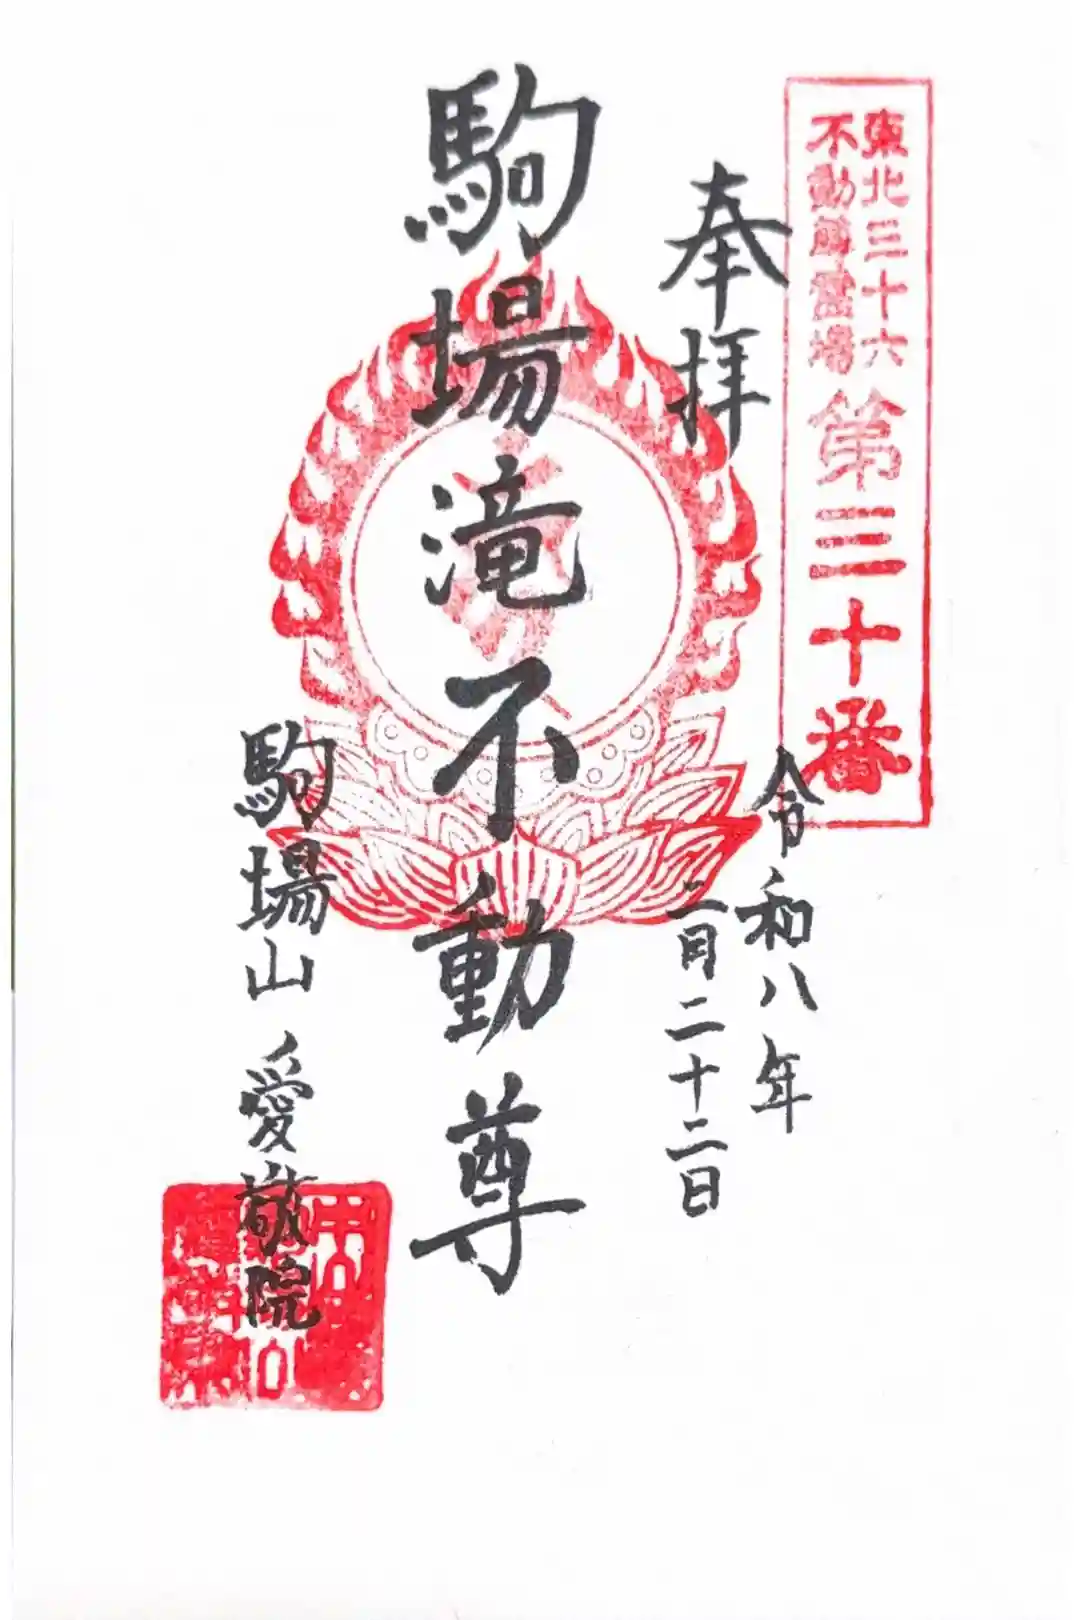 東北三十六
不動尊霊場
第三十番
奉拝
令和八年
二月二十二日
駒場滝不動尊
駒場山 愛敬院